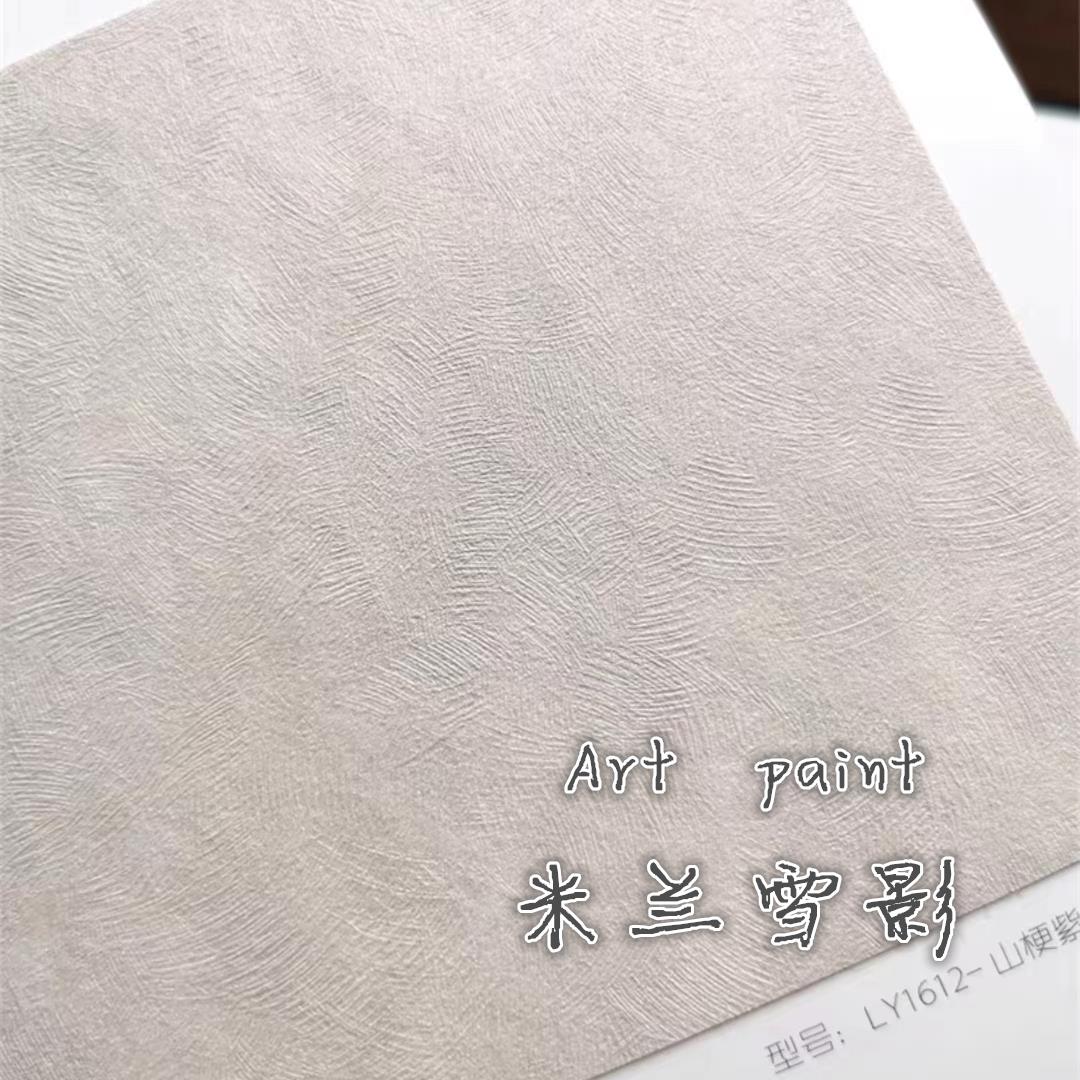 Art paint
米兰雪影
型号：LY1612-山梗紫